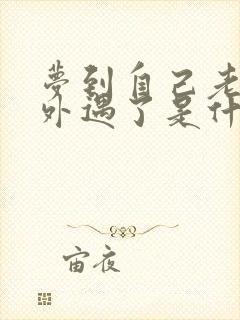 夢到自己老
外遇了是什
宙夜